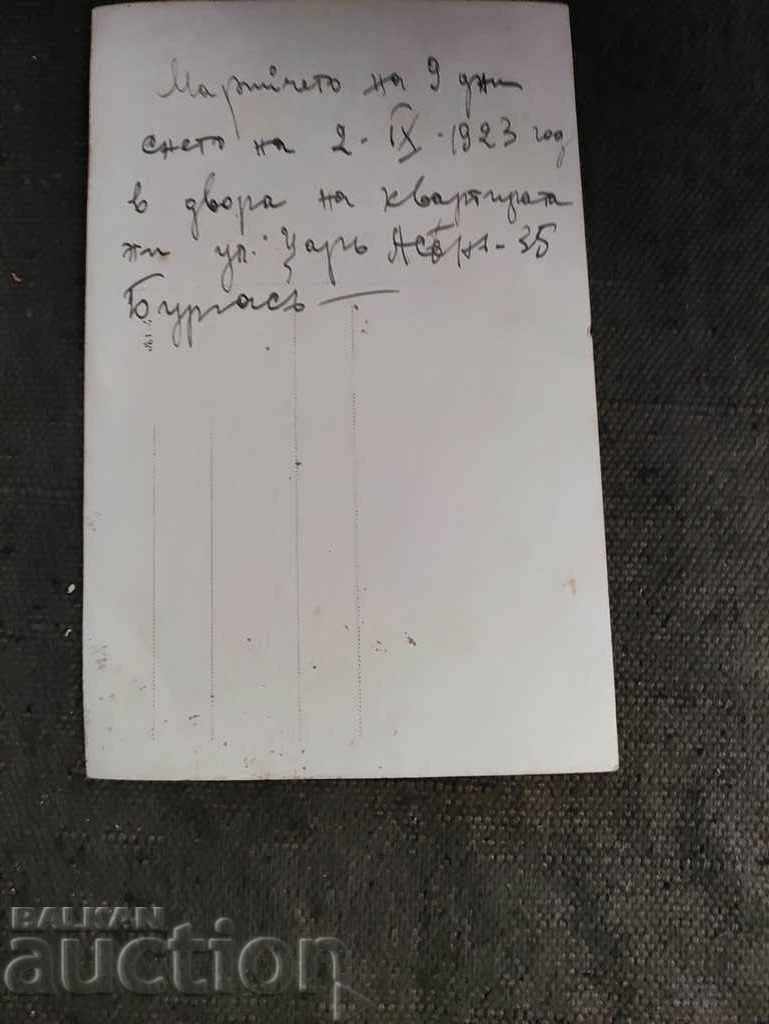 Марийчето на 9 дни
снето на 2-IX-1923 год
в двора на квартирата
ни ул. Царъ Асѣнъ-35
Бургасъ
BALKAN
auction